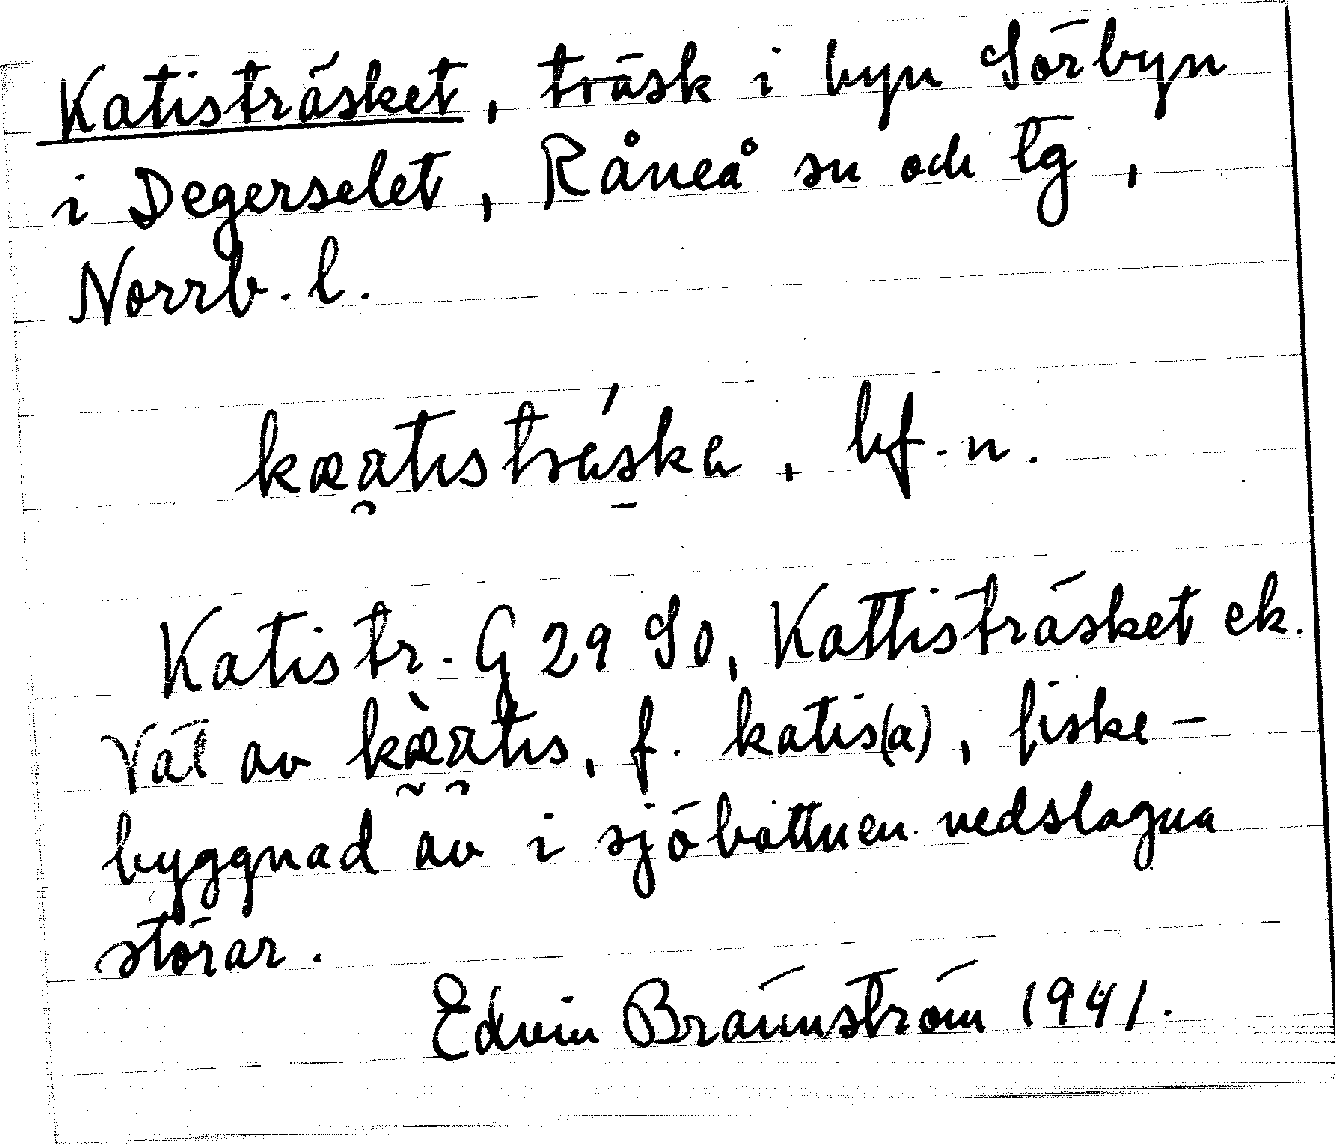 Katisträsket, träsk i byn Sörbyn
i Degerselet, Råneå sn och tg,
Norrb. l.
kæatisträska, bf. n.
Katistr. G 29 So, Kattisträsket ek.
Väl av kæ̀atis, f. katis(a), fiske-
byggnad av i sjöbottnen nedslagna
störar.
Edvin Brännström 1941.